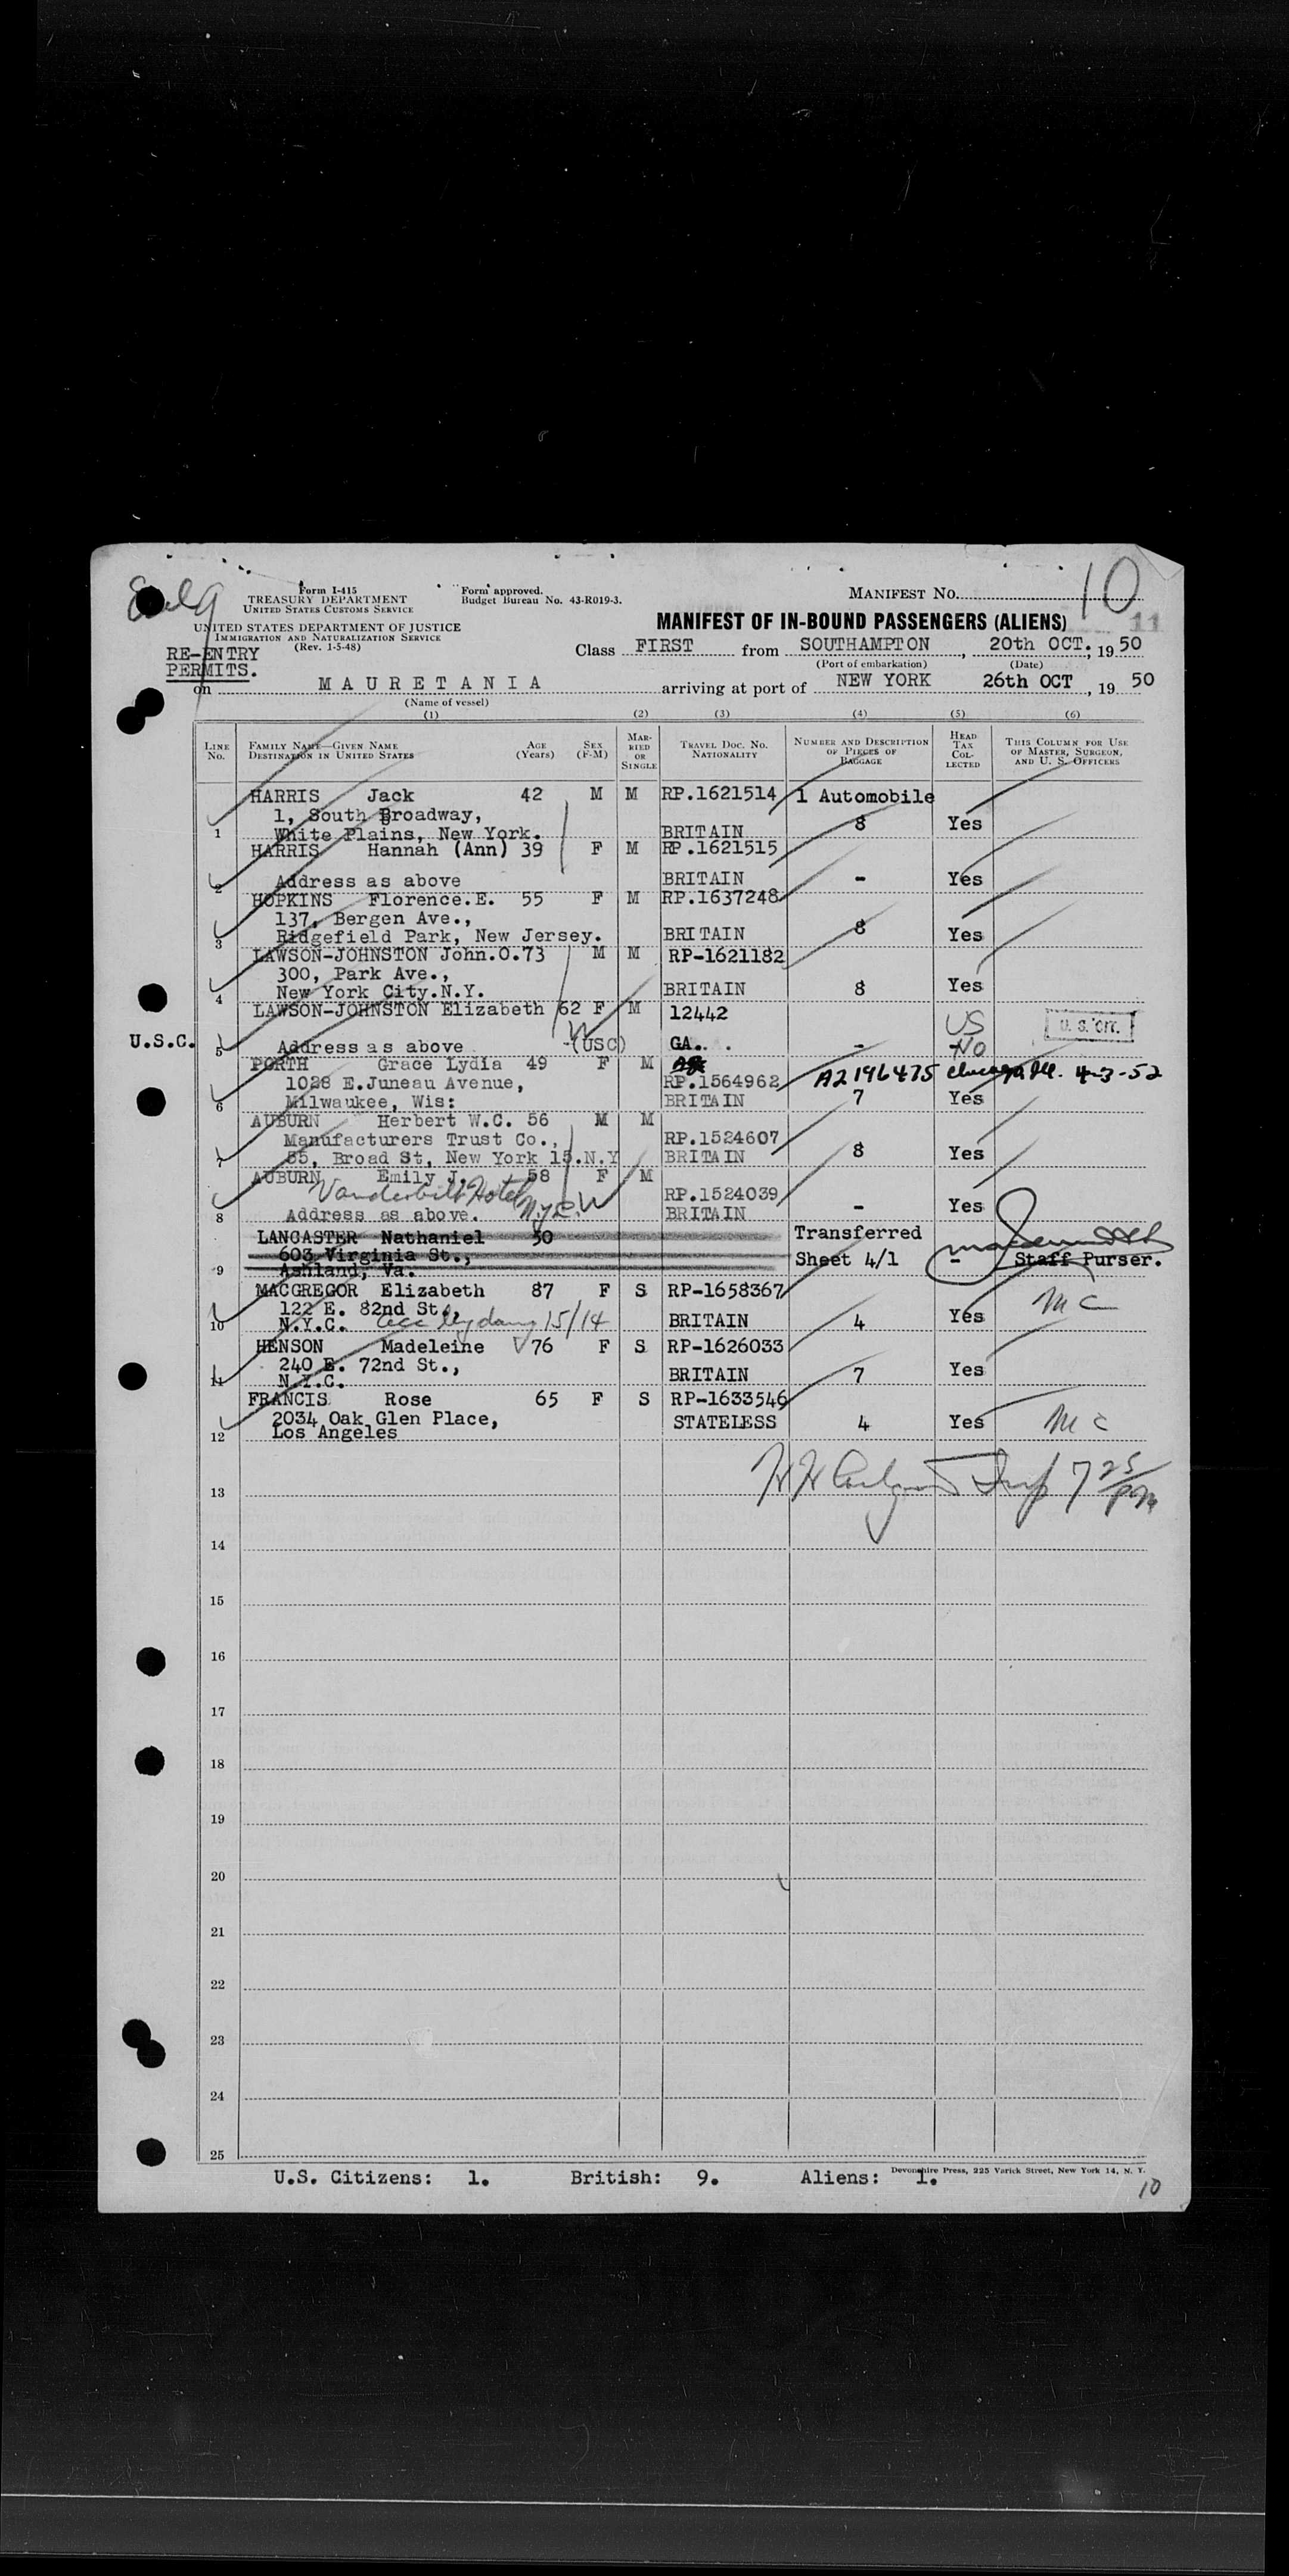 Form I-415
TREASURY DEPARTMENT
UNITED STATES CUSTOMS SERVICE
Form approved.
Budget Bureau No. 43-R019-3.
MANIFEST NO. 10
UNITED STATES DEPARTMENT OF JUSTICE
IMMIGRATION AND NATURALIZATION SERVICE
(Rev. 1-5-48)
MANIFEST OF IN-BOUND PASSENGERS (ALIENS) 11
RE-ENTRY
PERMITS.
Class FIRST from SOUTHAMPTON, 20th OCT., 19 50
(Port of embarkation) (Date)
on MAURETANIA arriving at port of NEW YORK 26th OCT, 19 50
(Name of vessel)
(1) (2) (3) (4) (5) (6)
LINE NO. FAMILY NAME—GIVEN NAME DESTINATION IN UNITED STATES AGE (Years) SEX (F-M) MARRIED OR SINGLE TRAVEL DOC. NO. NATIONALITY NUMBER AND DESCRIPTION OF PIECES OF BAGGAGE HEAD TAX COLLECTED THIS COLUMN FOR USE OF MASTER, SURGEON, AND U. S. OFFICERS
HARRIS Jack 42 M M RP.1621514 1 Automobile
1, South Broadway,
1 White Plains, New York. BRITAIN 8 Yes
HARRIS Hannah (Ann) 39 F M RP.1621515
2 Address as above BRITAIN - Yes
HOPKINS Florence.E. 55 F M RP.1637248
137, Bergen Ave.,
3 Ridgefield Park, New Jersey. BRITAIN 8 Yes
LAWSON-JOHNSTON John.O.73 M M RP-1621182
300, Park Ave.,
4 New York City.N.Y. BRITAIN 8 Yes
LAWSON-JOHNSTON Elizabeth 62 F M 12442 US
U.S.C. 5 Address as above (USC) GA. - NO U.S. CIT.
PORTH Grace Lydia 49 F M
1028 E.Juneau Avenue, RP.1564962 A2196475 4-3-52
6 Milwaukee, Wis: BRITAIN 7 Yes
AUBURN Herbert W.C. 56 M M
Manufacturers Trust Co., RP.1524607
7 55, Broad St, New York 15.N.Y BRITAIN 8 Yes
AUBURN Emily J. 58 F M
Vanderbilt Hotel N.Y.C. RP.1524039
8 Address as above. BRITAIN - Yes
LANCASTER Nathaniel 50 Transferred
603 Virginia St., Sheet 4/1 - Staff Purser.
9 Ashland, Va.
MACGREGOR Elizabeth 87 F S RP-1658367
122 E. 82nd St., MC
10 N.Y.C. 15/14 BRITAIN 4 Yes
HENSON Madeleine 76 F S RP-1626033
240 E. 72nd St.,
11 N.Y.C. BRITAIN 7 Yes
FRANCIS Rose 65 F S RP-1633546
2034 Oak Glen Place, STATELESS 4 Yes MC
12 Los Angeles
13 Insp 7 25/pm
14
15
16
17
18
19
20
21
22
23
24
25
U.S. Citizens: 1. British: 9. Aliens: 1.
Devonshire Press, 225 Varick Street, New York 14, N. Y.
10